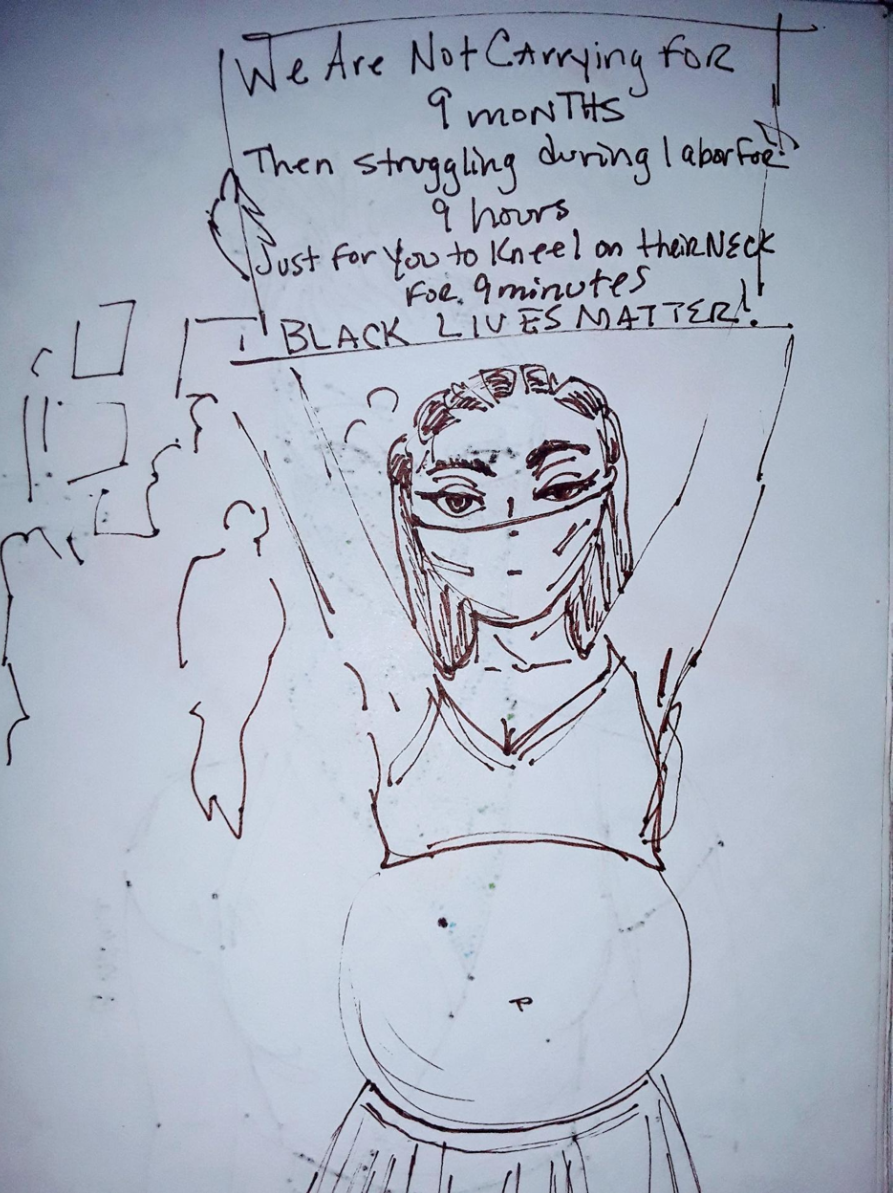 We Are Not CArrying FOR
9 monTHs
Then struggling during labor For
9 hours
Just for You to Kneel on their NECK
For 9 minutes
BLACK LIVES MATTER!